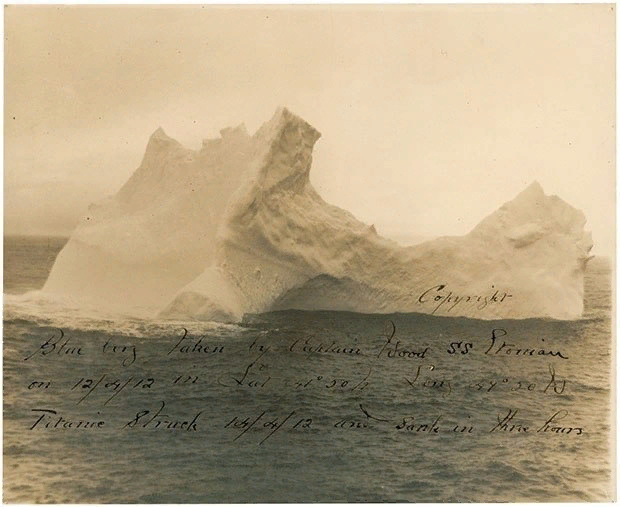 Copyright
Blue berg taken by Captain Wood SS Etonian
on 12/4/12 in Lat 41°50 N Long 49°50 W
Titanic Struck 14/4/12 and sank in three hours